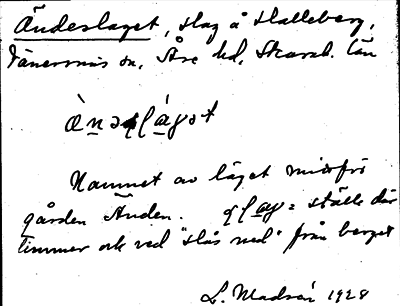 Ändeslaget, slag å Halleberg,
Vänersnäs sn, Åse hd, Skarab. län
Namnet av läget midtför
gården Änden. = ställe där
timmer ock ved "slås ned" från berget
1928